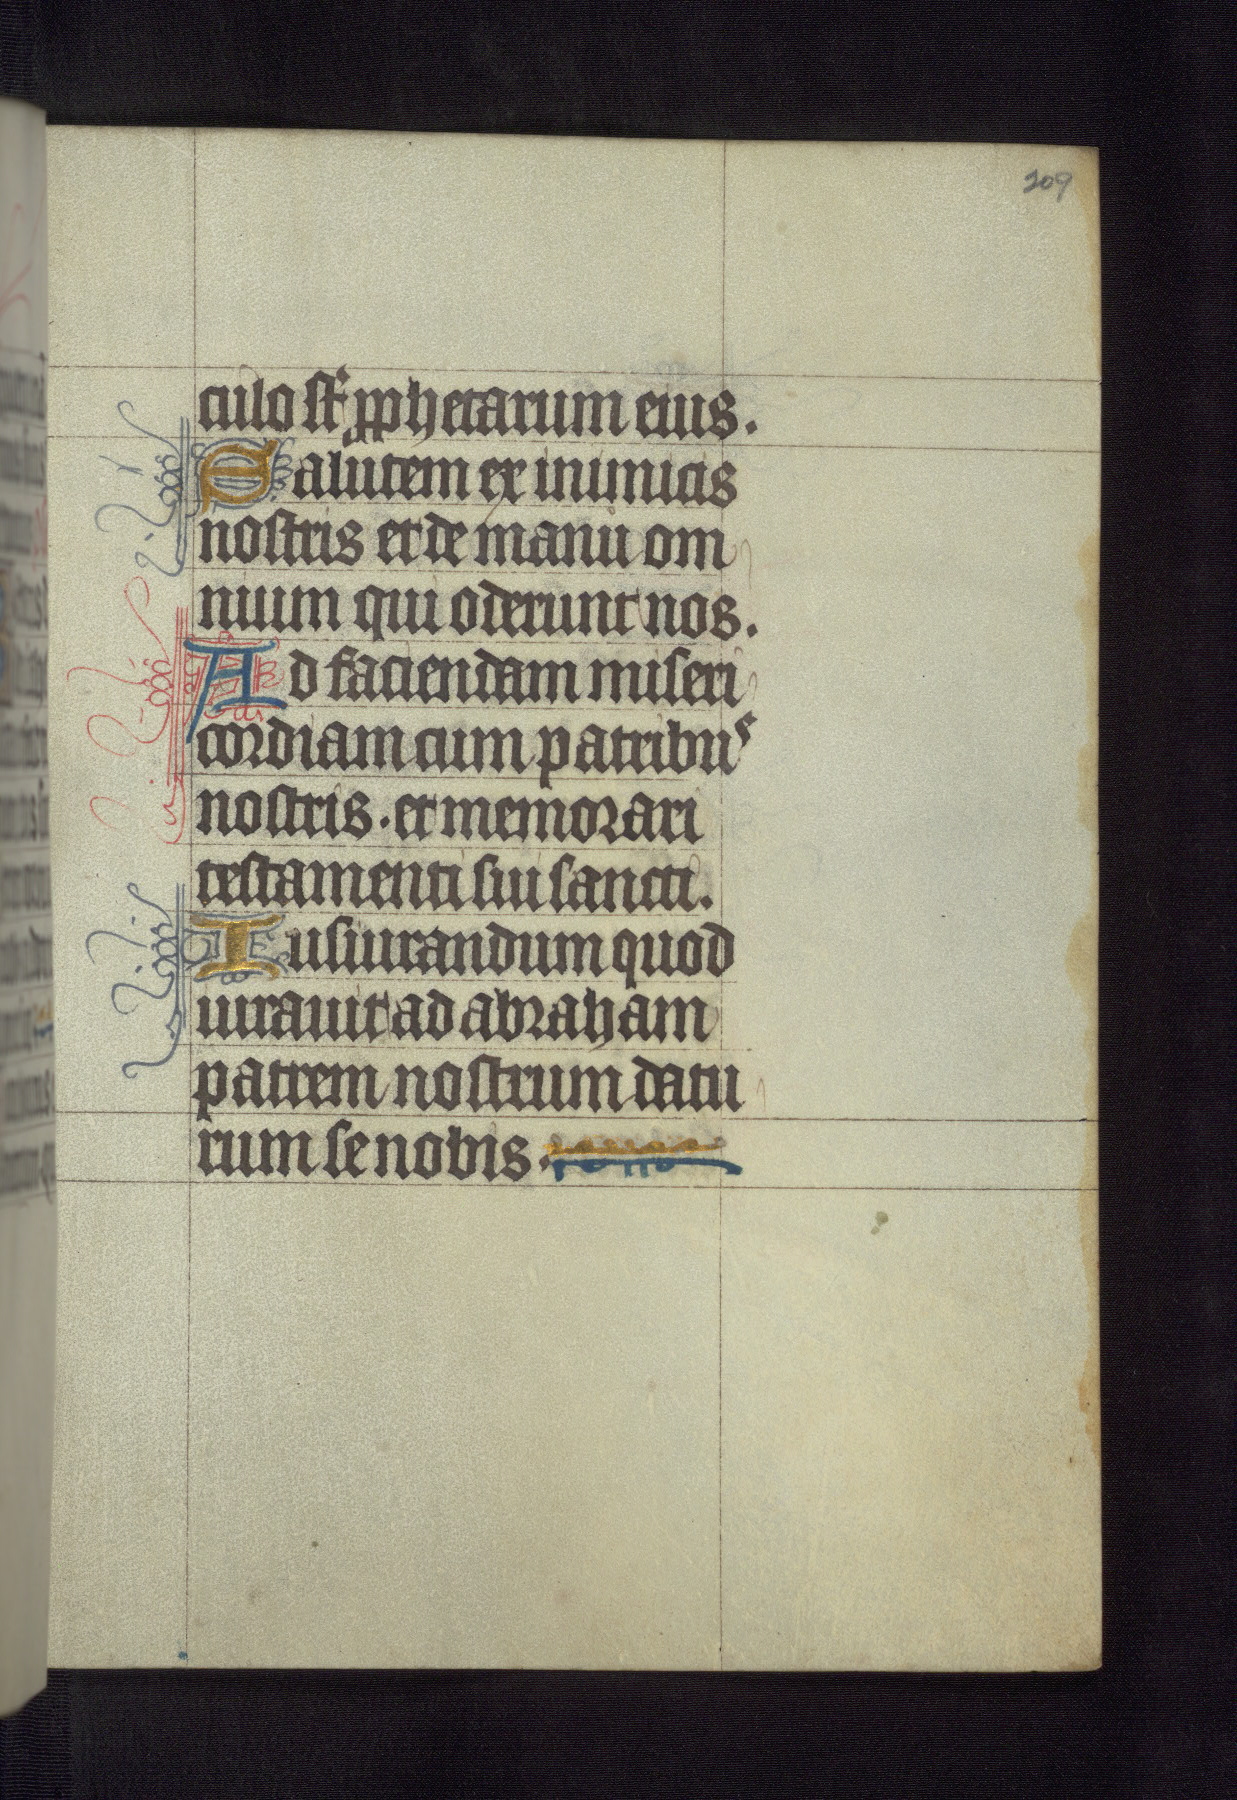 209
culo sunt pphetarum eius.
Salutem ex inimicis
nostris et de manu om
nium qui oderunt nos.
Ad faciendam miseri
cordiam cum patribus
nostris. et memorari
testamenti sui sancti.
Iusiurandum quod
iurauit ad abraham
patrem nostrum datu
rum se nobis.